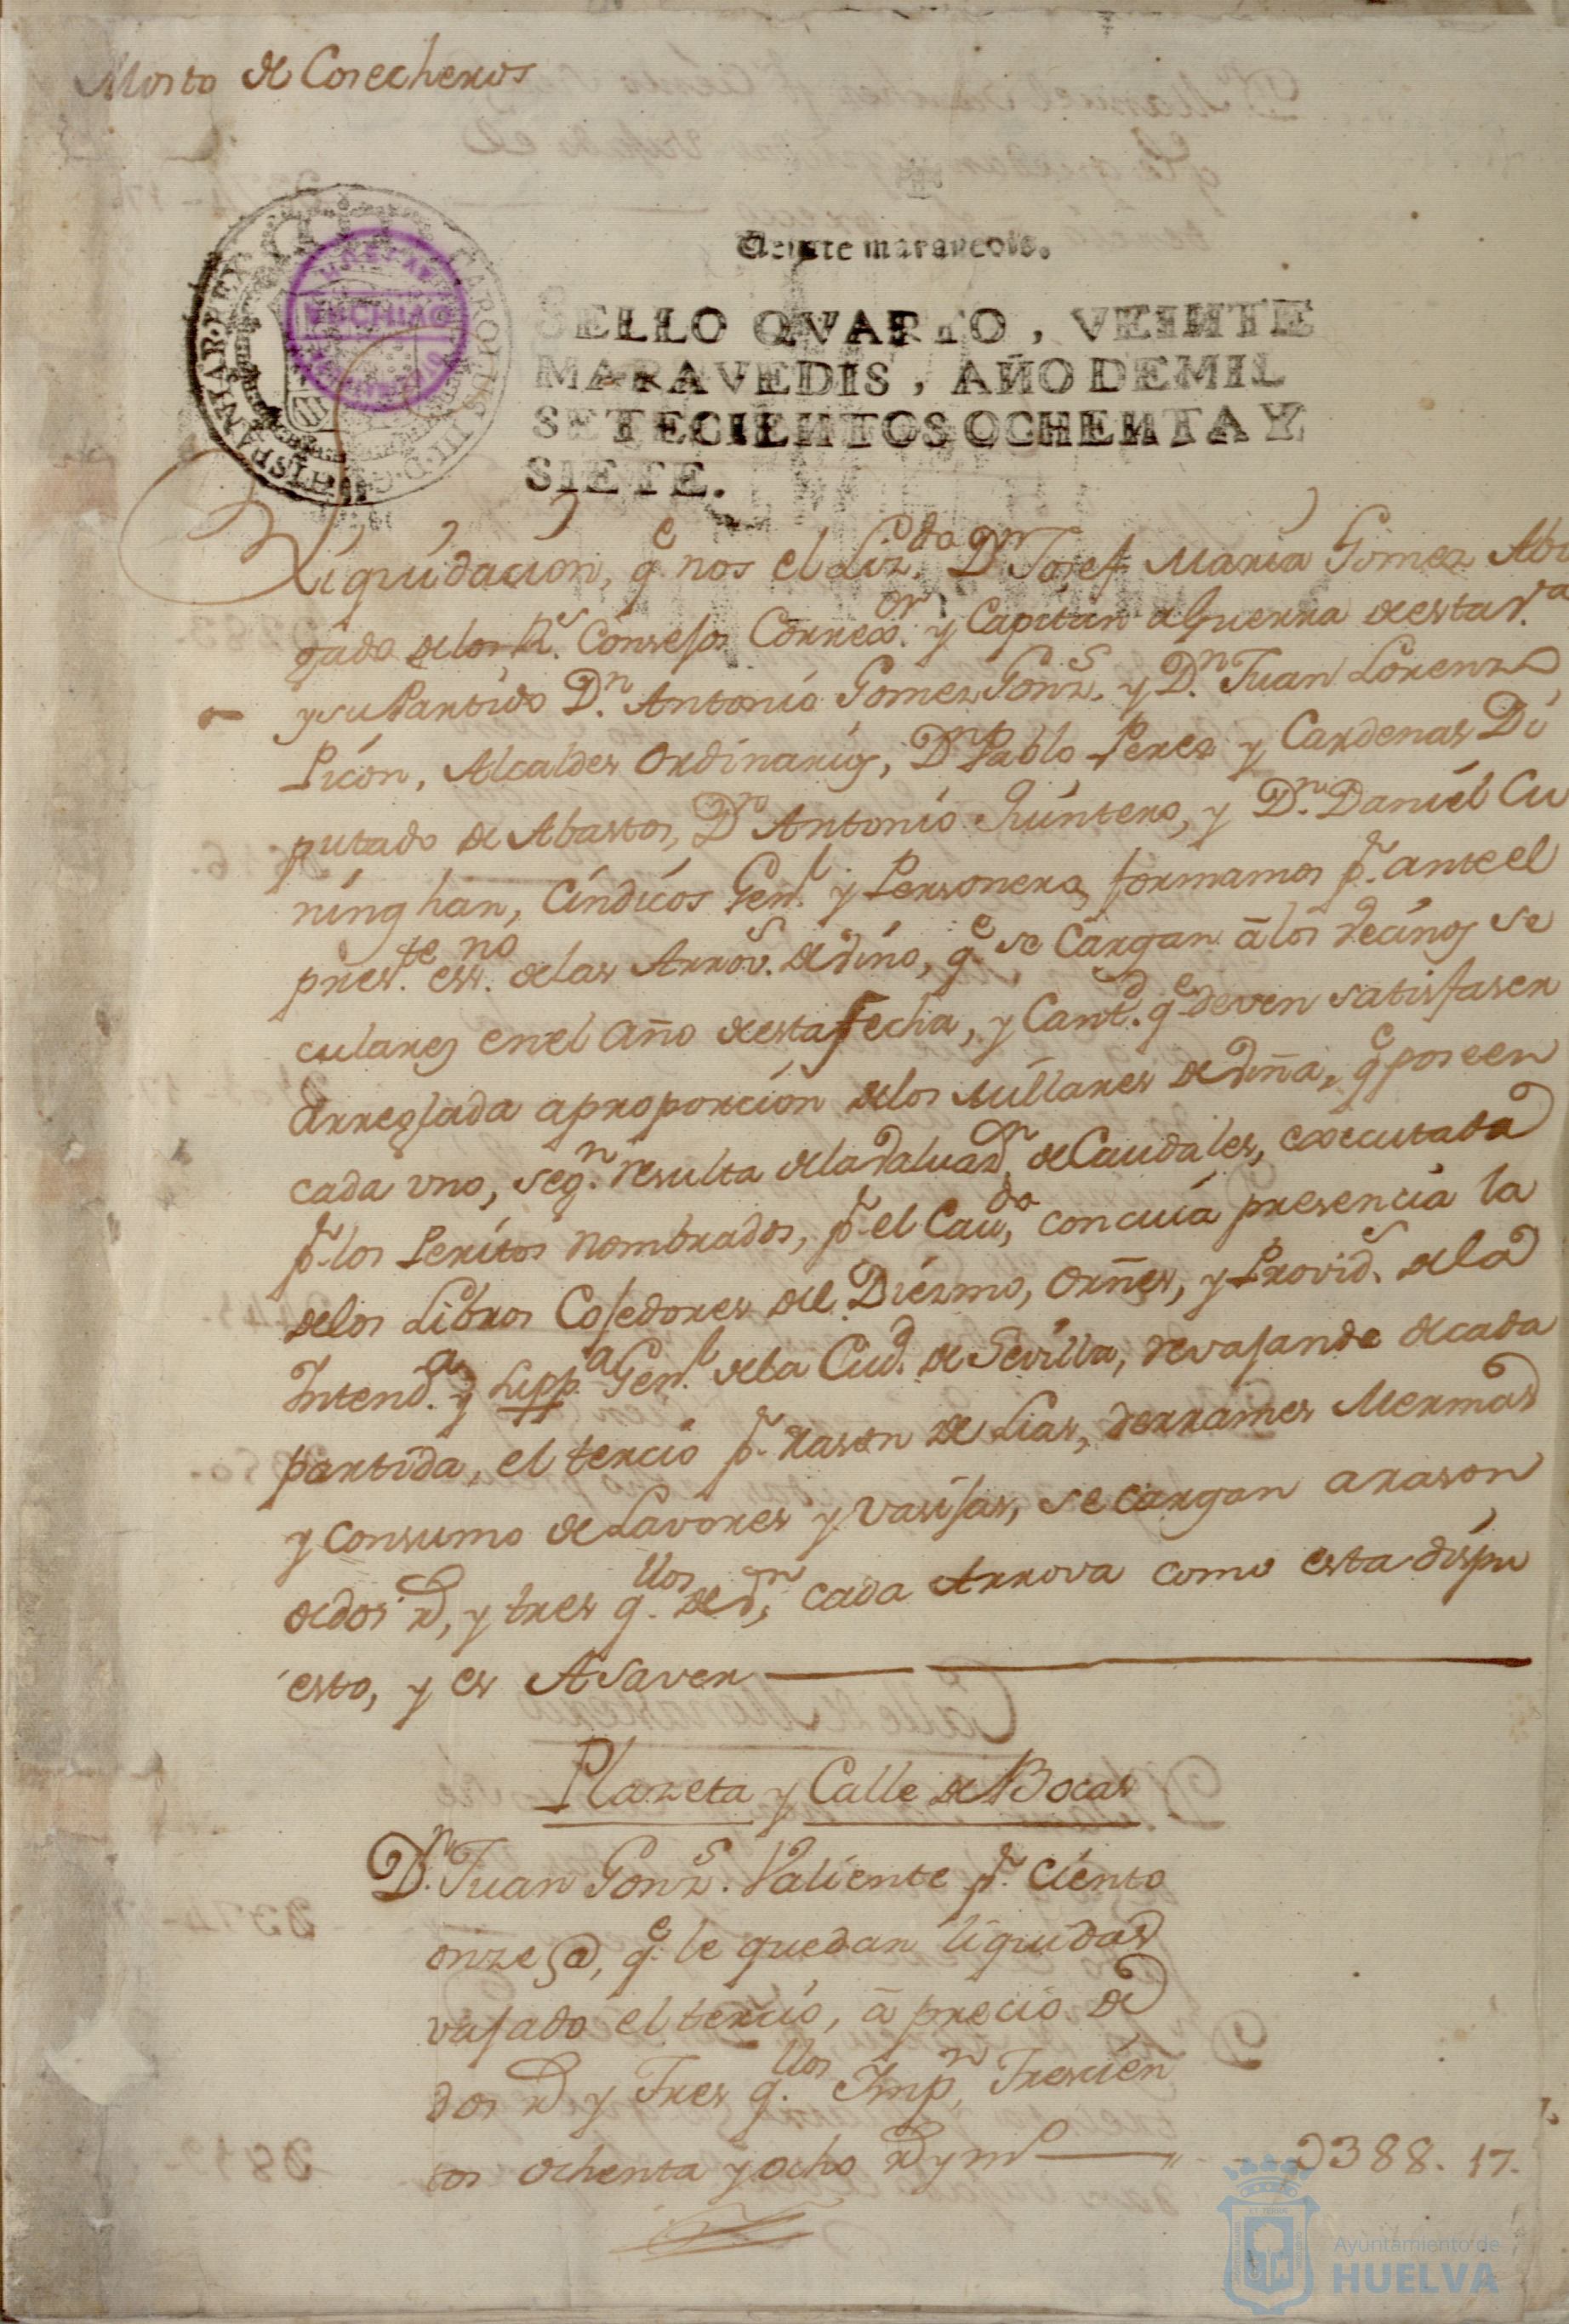 Mosto de Cosecheros
CAROLUS III D G
HISPANIAR REX
HUELVA
ARCHIVO
Veinte maravedis.
SELLO QVARTO, VEINTE
MARAVEDIS, AÑO DE MIL
SETECIENTOS OCHENTA Y
SIETE.
Liquidacion, q.e nos el Liz.do D.n Josef Maria Gomez Abo
gado de los R.s Consejos Correx.or y Capitan aGuerra de esta V.a
y su Partido D.n Antonio Gomez Gonz.s y D.n Juan Lorenzo
Picon, Alcaldes Ordinarios, D.n Pablo Perez y Cardenas Di
putado de Abastos, D.n Antonio Quintero, y D.n Daniel Cu
ninghan, Cindicos Gen.l y Personero, formamos p.r ante el
pres.te ess.no de las Arrov.s de vino, q.e se Cargan â los vecinos se
culares en el año de esta fecha, y Cant.d q.e deven satisfaser
arreglada a proporcion de los Millares de viña, q.e poseen
cada uno, seg.n resulta de la Valuaz.on de Caudales, executada
p.r los Peritos nombrados, p.r el Cav.do, con cuia presencia la
de los Libros Cojedores del Diezmo, Orñes, y Provid.s de la
Intend.a y Supp.a Gen.l de la Ciud.d de Sevilla, revajando de cada
partida, el tercio p.r rason de Lias, derrames Mermas
y consumo de Lavores y Vasijas, se cargan a rason
de dos r.s, y tres q.llos de v.n, cada Arrova como esta dispu
esto, y es A Saver
Plazeta y Calle de Bocas
D.n Juan Gonz.s Valiente p.r Ciento
onze @, q.e le quedan liquidas
vajado el tercio, â precio de
dos r.s y Tres q.llos Imp.n Trescien
tos ochenta y ocho r.s y m.o 388. 17.
Ayuntamiento de
HUELVA